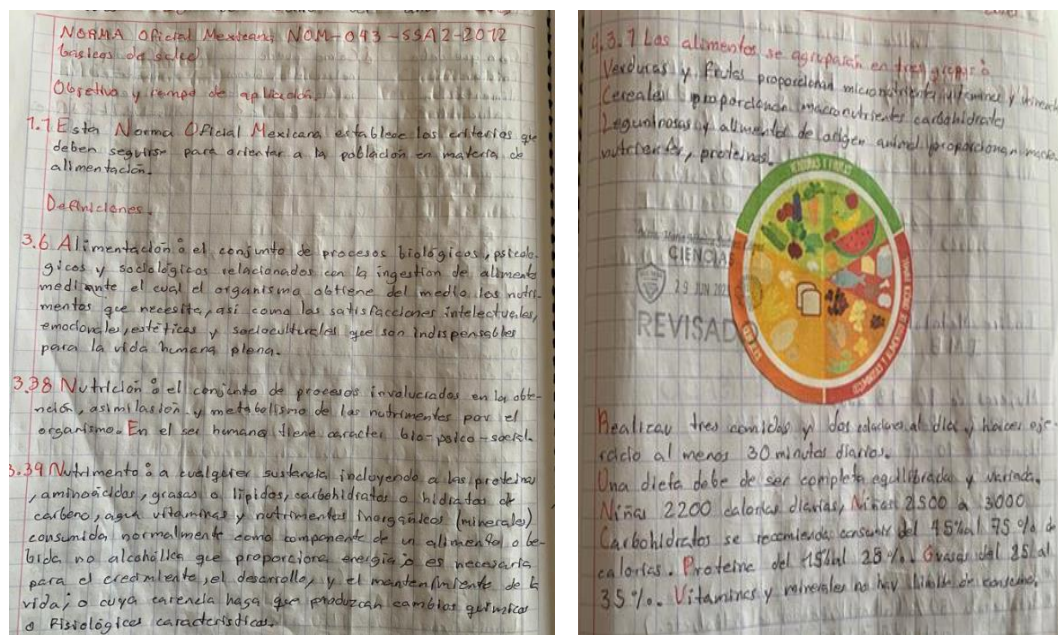 NORMA Oficial Mexicana NOM-043-SSA2-2012
básicos de salud
Objetivo y campo de aplicación.
1.1 Esta Norma Oficial Mexicana establece los criterios que
deben seguirse para orientar a la población en materia de
alimentación.
Definiciones.
3.6 Alimentación: el conjunto de procesos biológicos, psicoló-
gicos y sociológicos relacionados con la ingestion de alimentos
mediante el cual el organismo obtiene del medio los nutri-
mentos que necesita, así como las satisfacciones intelectuales,
emocionales, estéticas y socioculturales que son indispensables
para la vida humana plena.
3.38 Nutrición: el conjunto de procesos involucrados en la obte-
nción, asimilasión y metabolismo de los nutrimentos por el
organismo. En el ser humano tiene caracter bio-psico-social.
3.39 Nutrimento: a cualquier sustancia incluyendo a las proteínas
, aminoácidos, grasas o lípidos, carbohidratos o hidratos de
carbono, agua vitaminas y nutrimentos inorgánicos (minerales)
consumida normalmente como componente de un alimento o be-
bida no alcohólica que proporciona energía; o es necesaria
para el crecimiento, el desarrollo, y el mantenimiento de la
vida; o cuya carencia haga que produzcan cambios químicos
o fisiológicos característicos.
4.3.1 Los alimentos se agruparán en tres grupos:
Verduras y frutas proporcionan micronutrientes vitaminas y
Cereales proporcionan macronutrientes carbohidratos
Leguminosas y alimentos de origen animal proporcionan
nutrientes, proteínas.
VERDURAS Y FRUTAS
CEREALES
LEGUMINOSAS Y ALIMENTOS DE ORIGEN ANIMAL
CIENCIAS
29 JUN
REVISADO
Realizar tres comidas y dos colaciones al día y hacer eje-
rcicio al menos 30 minutos diarios.
Una dieta debe de ser completa equilibrada y variada.
Niñas 2200 calorías diarias, Niños 2500 a 3000
Carbohidratos se recomienda consumir del 45% al 75% de
calorías. Proteína del 15% al 25%. Grasas del 25% al
35%. Vitaminas y minerales no hay límite de consumo.